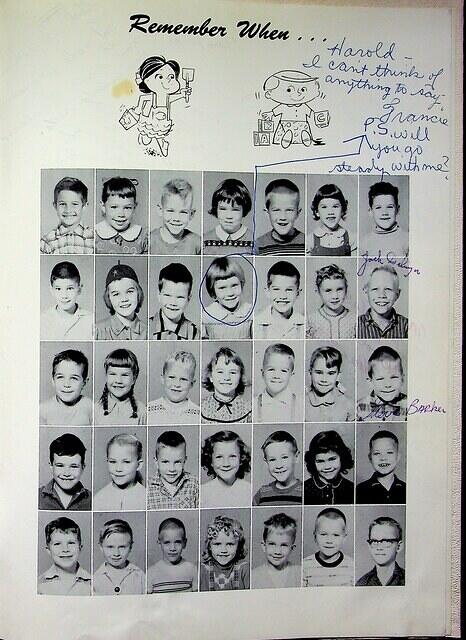 Remember When ...
Harold –
I can't think of
anything to say-
Francie
P.S. will
you go
steady with me?
Jack
Barker